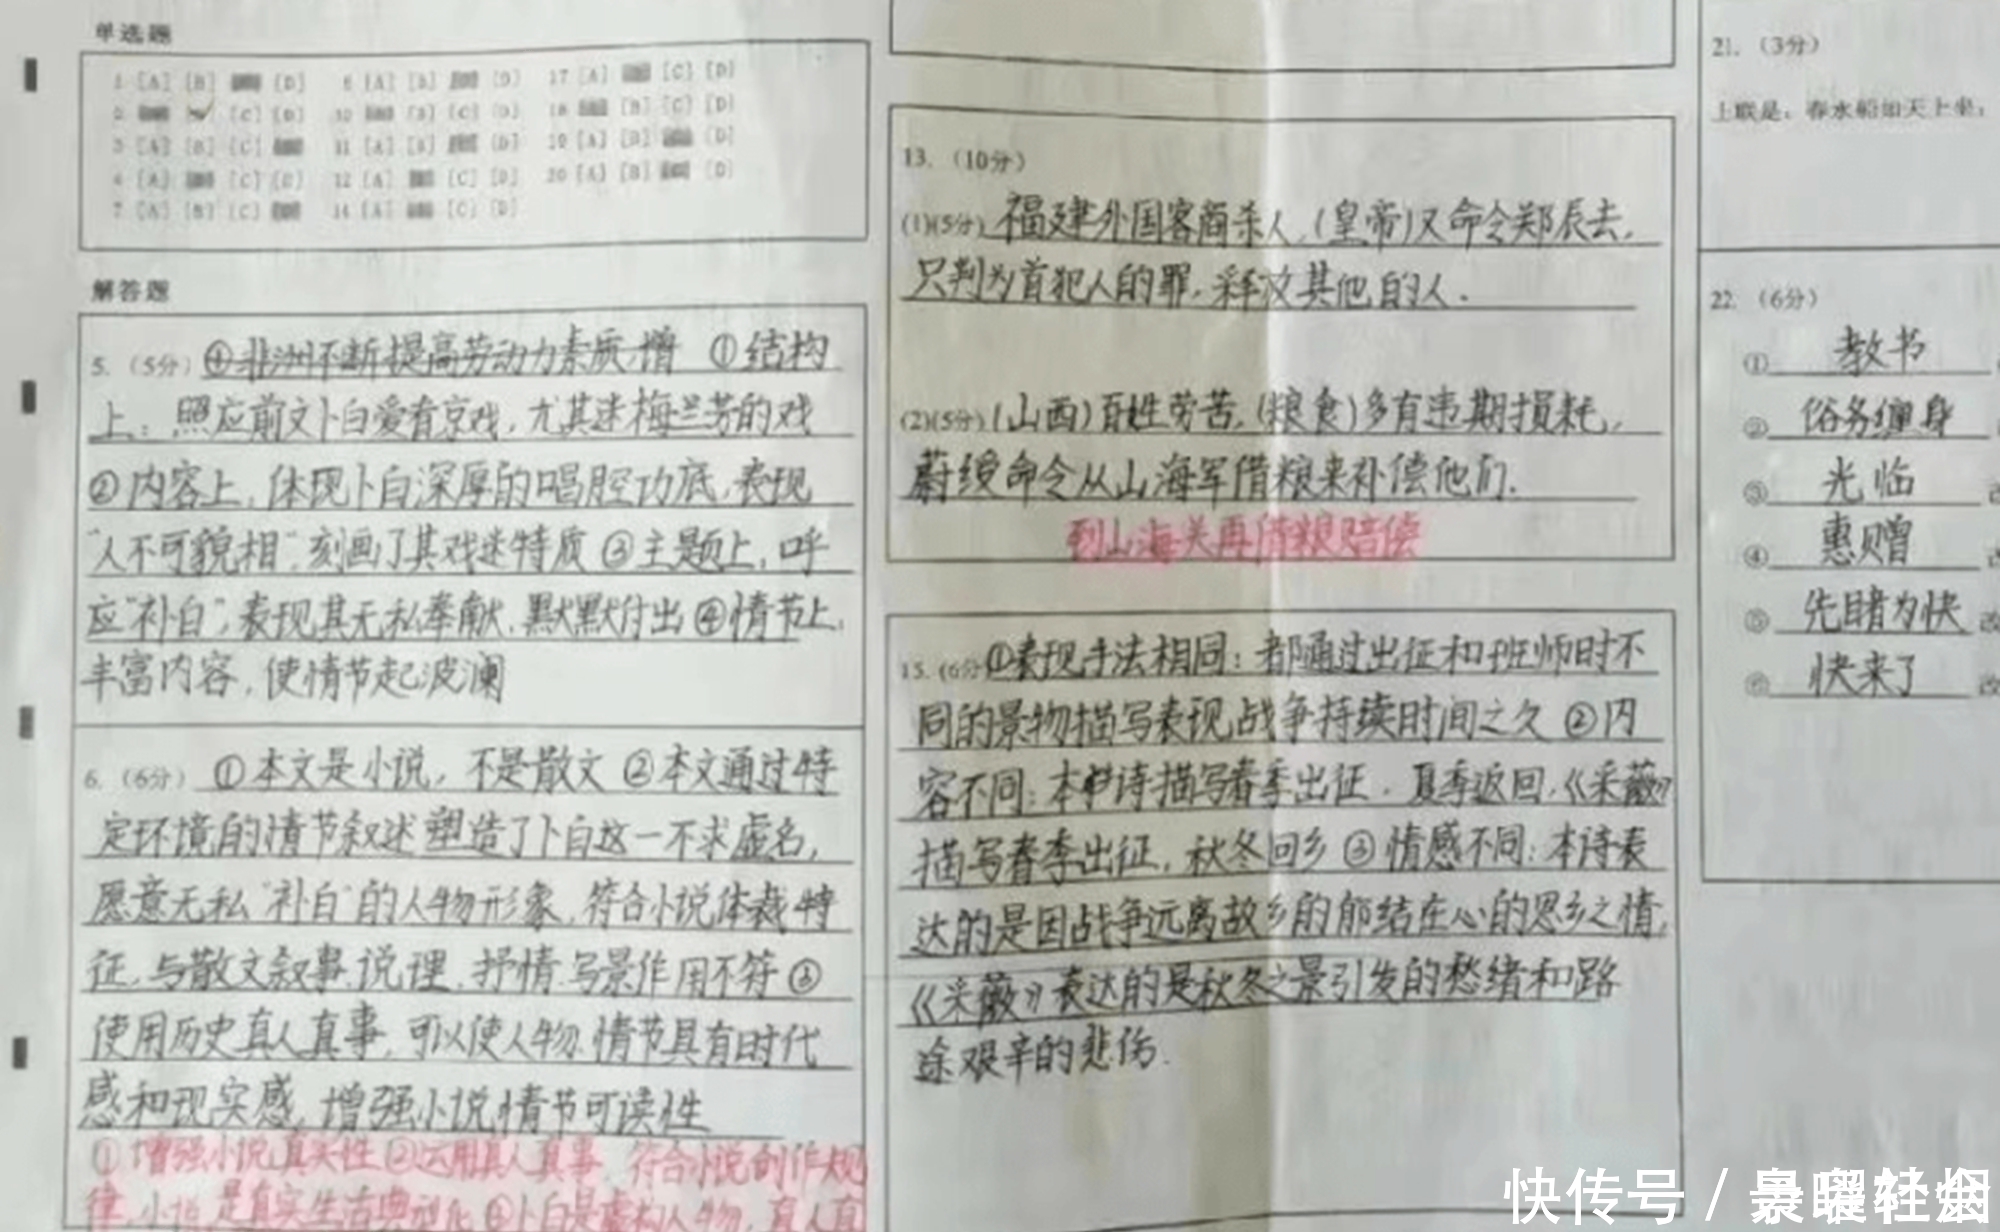 单选题
1 [A] [B] [D] 6 [A] [B] [D] 17 [A] [C] [D]
2 [C] [D] 10 [B] [C] [D] 18 [B] [C] [D]
3 [A] [B] [C] 11 [A] [B] [D] 19 [A] [B] [D]
4 [A] [C] [D] 12 [A] [C] [D] 20 [A] [B] [D]
7 [A] [B] [C] 14 [A] [C] [D]
解答题
5. (5分) ④非洲不断提高劳动力素质,增 ①结构
上：照应前文卜白爱看京戏，尤其迷梅兰芳的戏
②内容上，体现卜白深厚的唱腔功底，表现
“人不可貌相”，刻画了其戏迷特质③主题上，呼
应“补白”，表现其无私奉献、默默付出④情节上，
丰富内容，使情节起波澜
6. (6分) ①本文是小说，不是散文②本文通过特
定环境的情节叙述塑造了卜白这一不求虚名，
愿意无私“补白”的人物形象，符合小说体裁特
征，与散文叙事、说理、抒情、写景作用不符③
使用历史真人真事，可以使人物、情节具有时代
感和现实感，增强小说情节可读性
①增强小说真实性②运用真人真事，符合小说创作规
律，小说是真实生活典型化③卜白是虚构人物，真人真
13. (10分)
(1)(5分) 福建外国客商杀人，(皇帝)又命令郑辰去，
只判为首犯人的罪，释放其他的人.
(2)(5分) (山西)百姓劳苦，(粮食)多有违期损耗，
蔚绶命令从山海军借粮来补偿他们.
到山海关再借粮赔偿
15. (6分) ①表现手法相同：都通过出征和班师时不
同的景物描写表现战争持续时间之久②内
容不同：本诗描写春季出征，夏季返回，《采薇》
描写春季出征，秋冬回乡③情感不同：本诗表
达的是因战争远离故乡的郁结在心的思乡之情，
《采薇》表达的是秋冬之景引发的愁绪和路
途艰辛的悲伤.
21. (3分)
上联是：春水船如天上坐；
22. (6分)
① 教书
② 俗务缠身
③ 光临
④ 惠赠
⑤ 先睹为快 改
⑥ 快来了 改
快传号 /